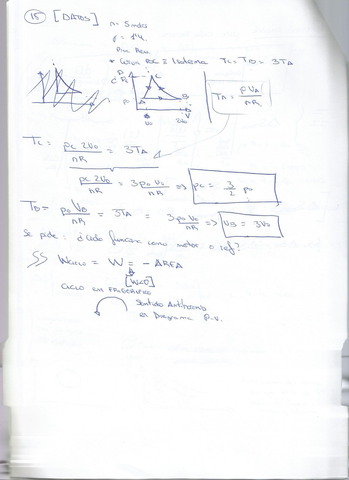 15 [DATOS]
n = 5 moles
γ = 1'4
* Curva BC ≡ Isoterma Tc = TB = 3TA
P
C
Pc
P0
A
B
V0
V
TA = P VA / nR
Tc = pc 2V0 / nR = 3TA
pc 2V0 / nR = 3 p0 V0 / nR ⇒ pc = 3/2 p0
TB = p0 VB / nR = 3TA = 3 p0 V0 / nR ⇒ VB = 3V0
Se pide: ¿ciclo funciona como motor o ref?
Wciclo = W = - AREA
[W<0]
CICLO en FRIGORIFICO
Sentido Antihorario
en Diagrama p-V.